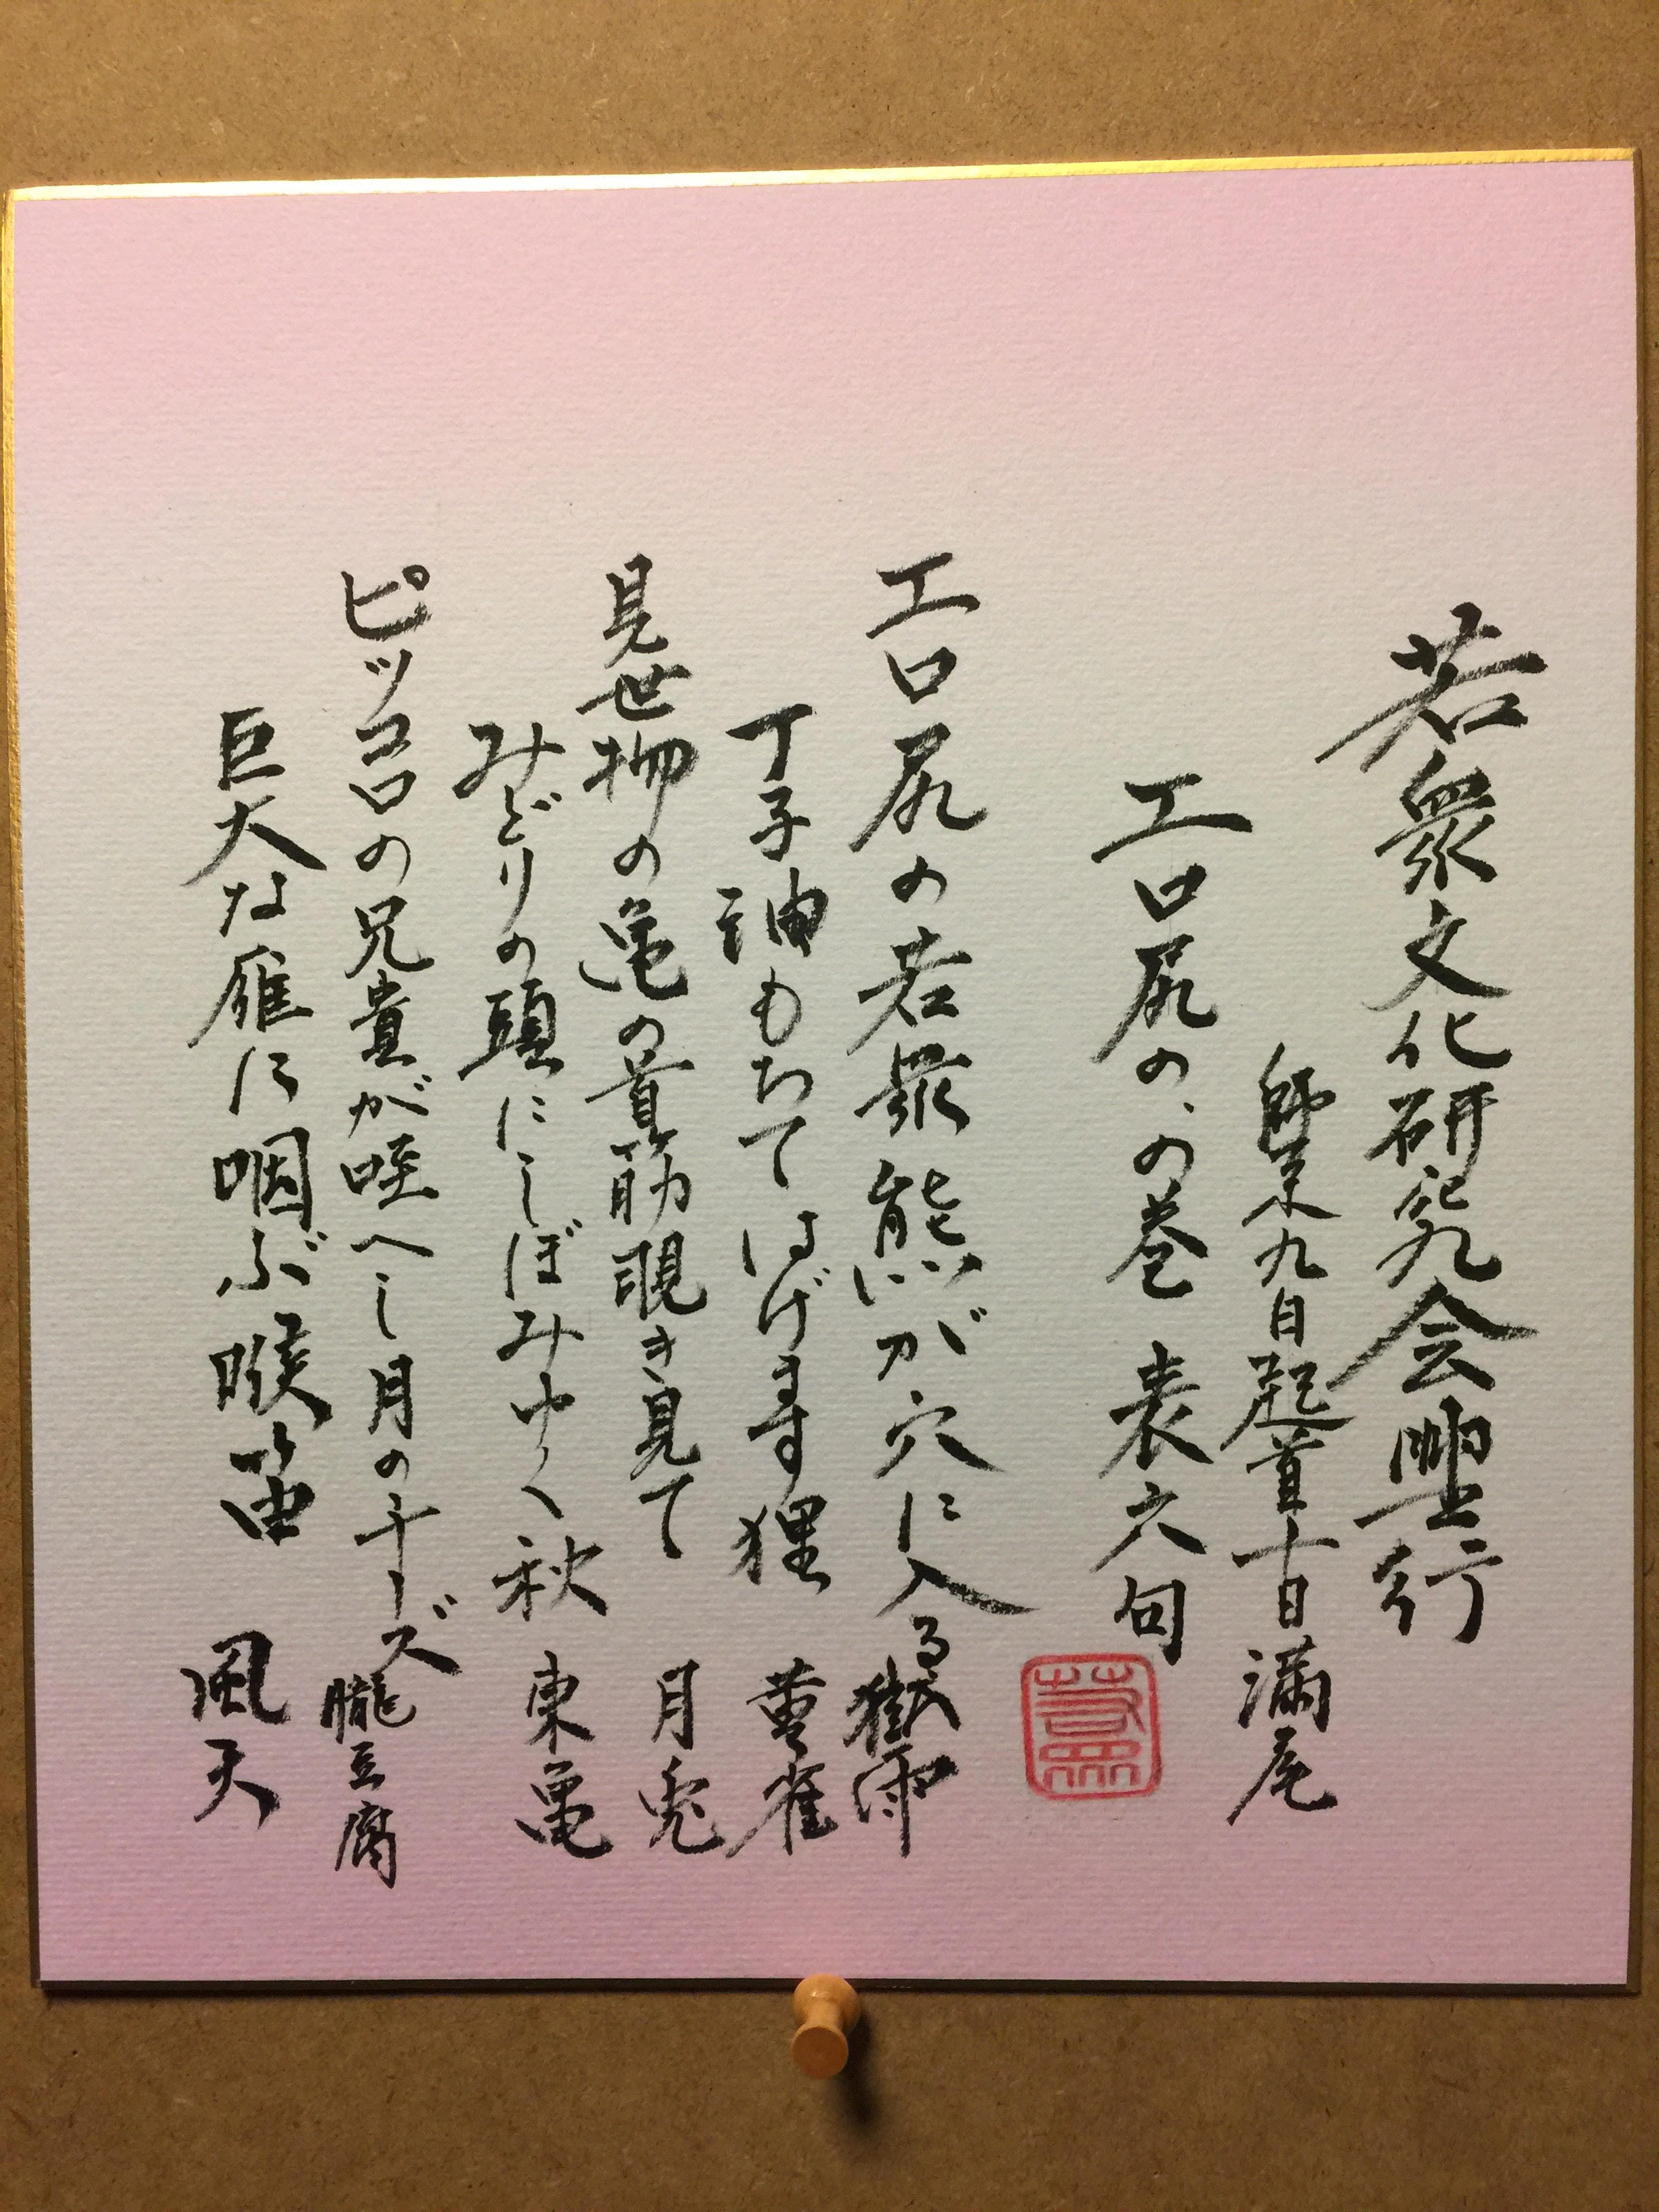 若衆文化研究会興行
師走九日起首十日満尾
エロ尻の、の巻 表六句
エロ尻の若衆熊が穴に入る 獄雨
丁子油もちてはげます狸
見世物の亀の首筋覗き見て 月兎
みどりの頭にしぼみゆく秋 東亀
ピッコロの兄貴が咥へし月のチーズ 朧豆腐
巨大な雁に咽ぶ喉笛 風天
若衆